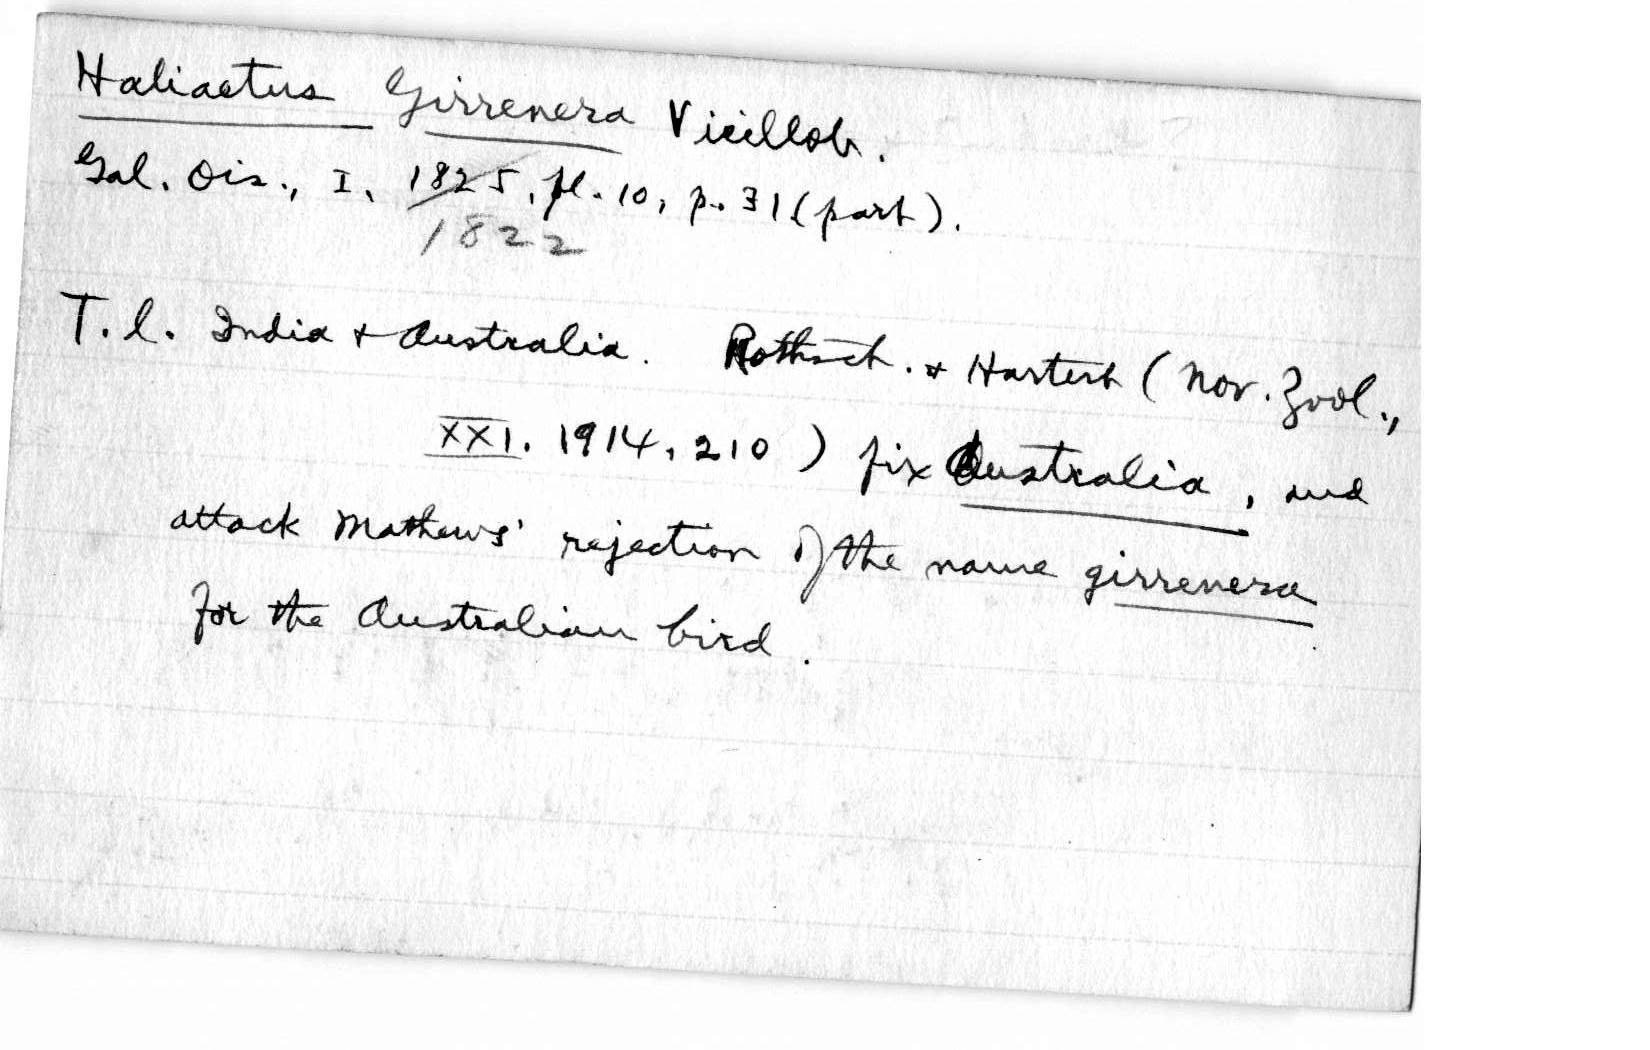 Haliaetus Girrenera Vieillot.
Gal. Ois., I, 1825, pl. 10, p. 31 (part).
1822
T. l. India + Australia. Rothsch. + Hartert (Nov. Zool.,
XXI. 1914, 210) fix Australia, and
attack Mathews' rejection of the name girrenera
for the Australian bird.